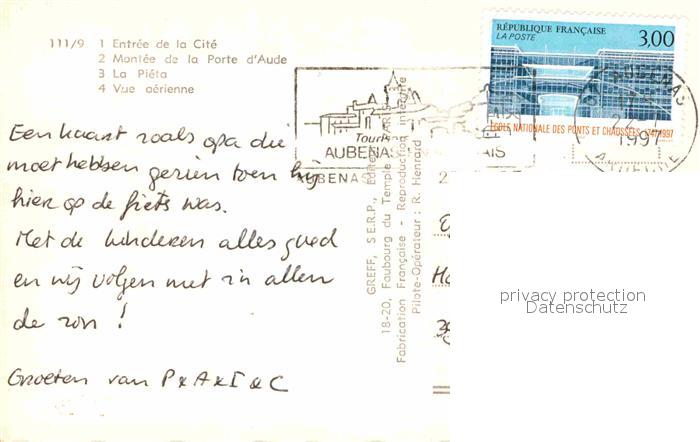 111/9 1 Entrée de la Cité
2 Montée de la Porte d'Aude
3 La Piéta
4 Vue aérienne
RÉPUBLIQUE FRANÇAISE
LA POSTE
3,00
ÉCOLE NATIONALE DES PONTS ET CHAUSSÉES 1747/1997
AUBENAS
1997
ARDECHE
AUBENAS
AUBENAS
Een kaart zoals opa die
moet hebben gezien toen hij
hier op de fiets was.
Met de kinderen alles goed
en wij volgen met z'n allen
de zon!
Groeten van P & A & I & C
GREFF, S.E.R.P., Editeur
18-20, Faubourg du Temple PARIS
Fabrication Française - Reproduction interdite
Pilote-Opérateur : R. Henrard
privacy protection
Datenschutz